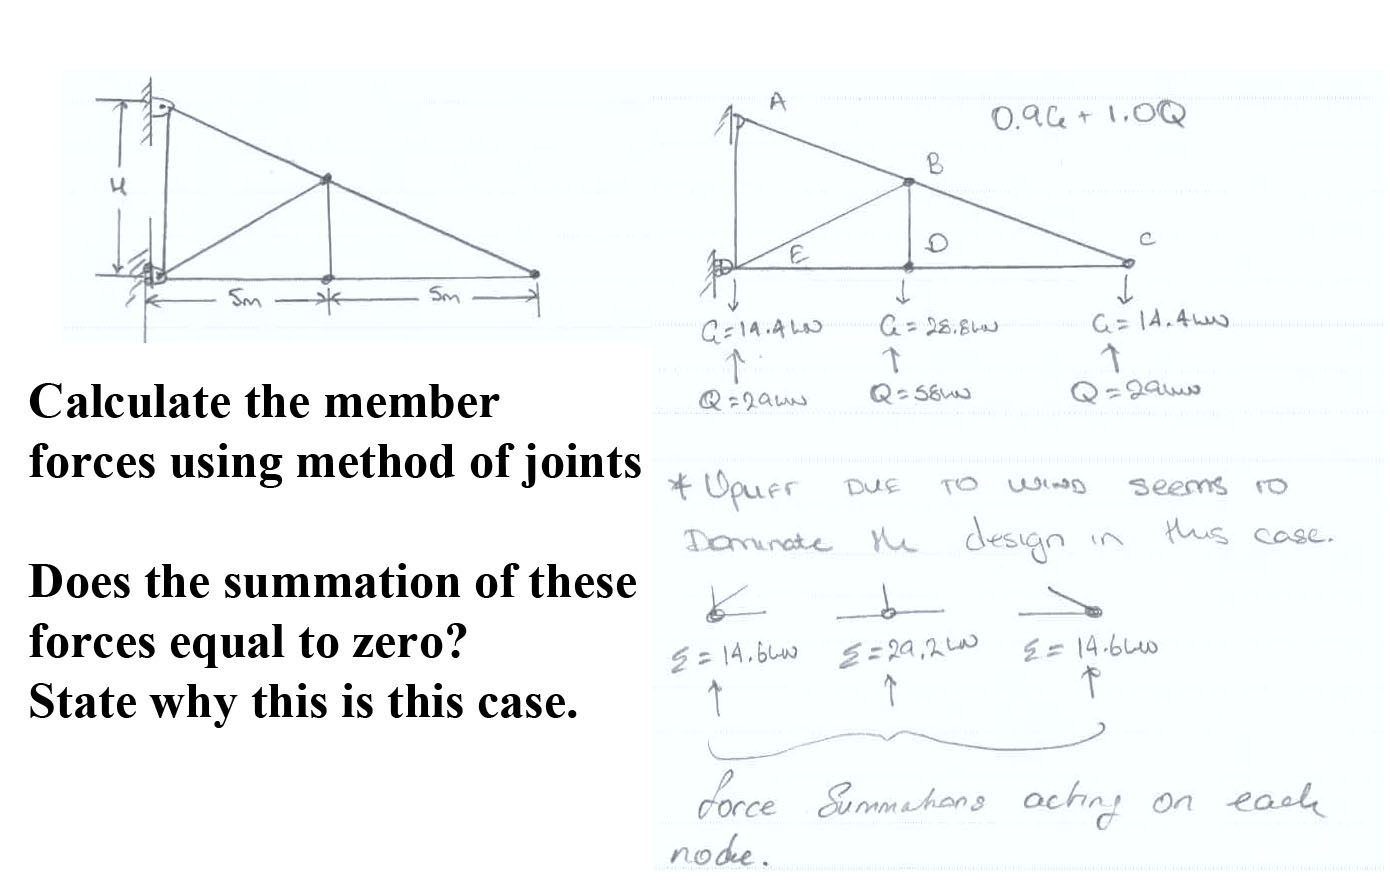 H
5m
5m
A
0.9G + 1.0Q
B
D
C
E
G = 14.4kN
G = 28.8kN
G = 14.4kN
Q = 29kN
Q = 58kN
Q = 29kN
Calculate the member
forces using method of joints
Does the summation of these
forces equal to zero?
State why this is this case.
* Uplift DUE TO WIND seems TO
Dominate the design in this case.
Σ = 14.6kN
Σ = 29.2kN
Σ = 14.6kN
force Summations acting on each
node.